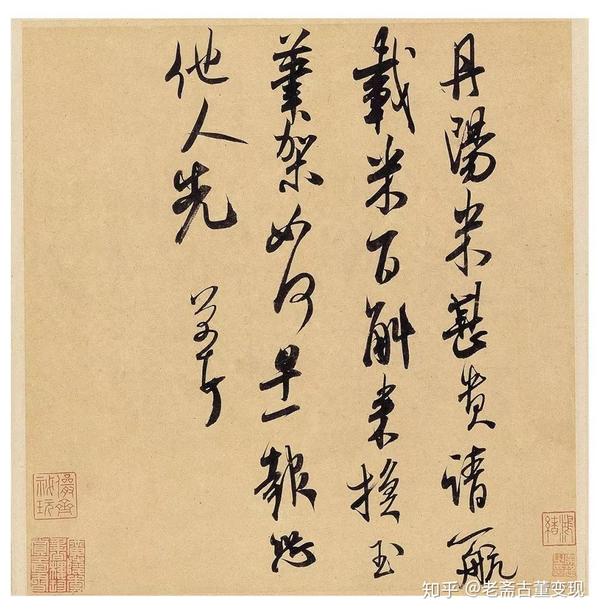 丹陽米甚貴請一航
載米百斛来換玉
筆架如何早一報恐
他人先
芾頓首
知乎 @老斋古董变现